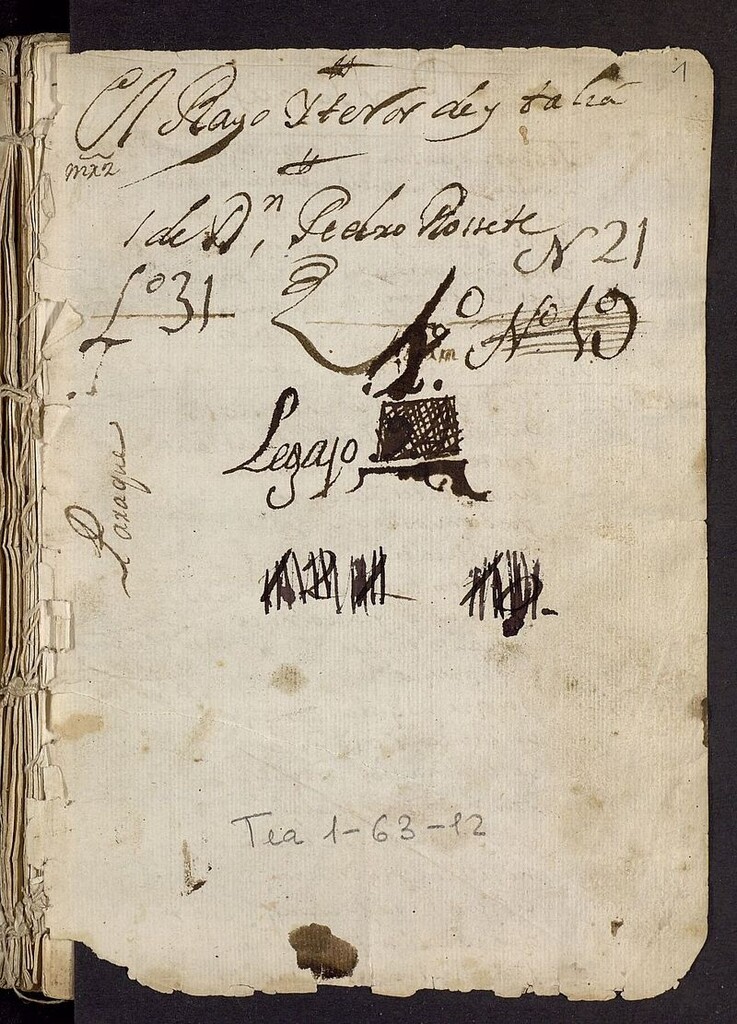 1
El Rayo Y teror de y talia
1 de Dn, Pedro Rossete
N 21
Lo 31
1o No 19
Legajo
Paraque
Tea 1-63-12